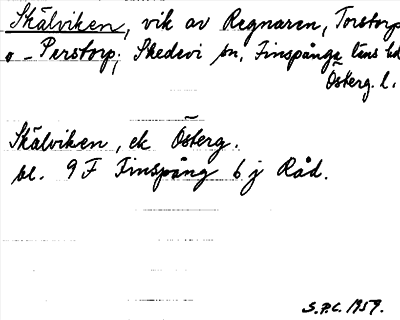 Skälviken, vik av Regnaren, Torstorp
o - Perstorp, Skedevi sn, Finspånga läns hd
Österg. l.
Skälviken, ek Österg.
bl. 9 F Finspång 6 j Råd.
S.P.C. 1959.